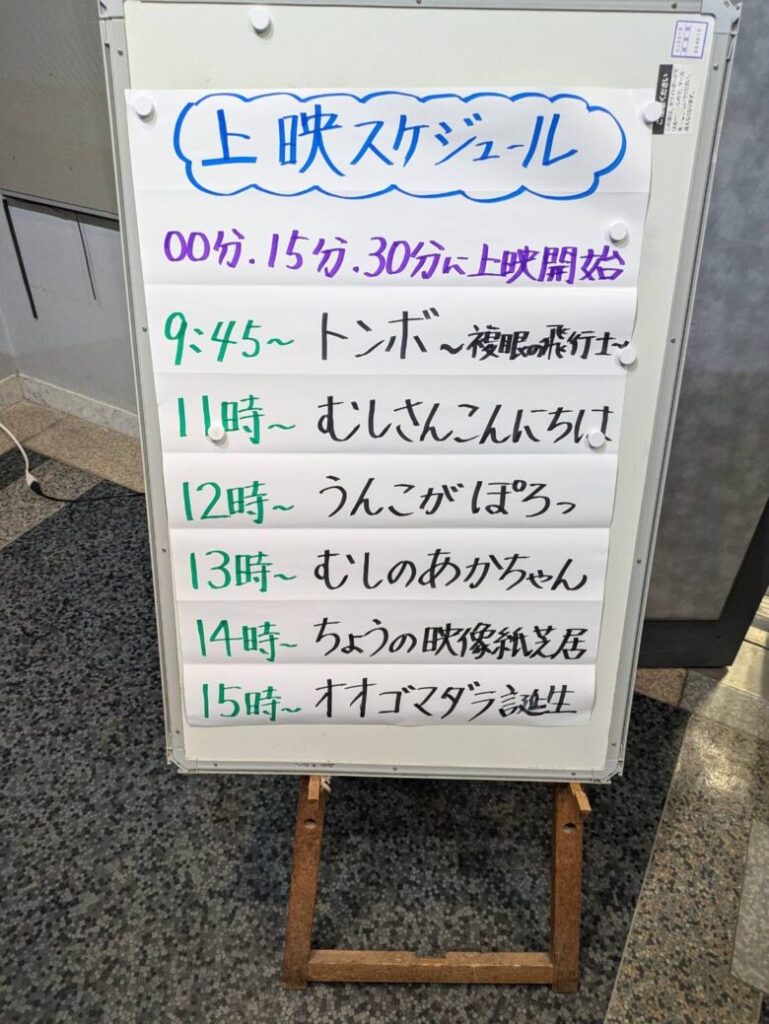 上映スケジュール
00分.15分.30分に上映開始
9:45～ トンボ～複眼の飛行士～
11時～ むしさんこんにちは
12時～ うんこがぽろっ
13時～ むしのあかちゃん
14時～ ちょうの映像紙芝居
15時～ オオゴマダラ誕生